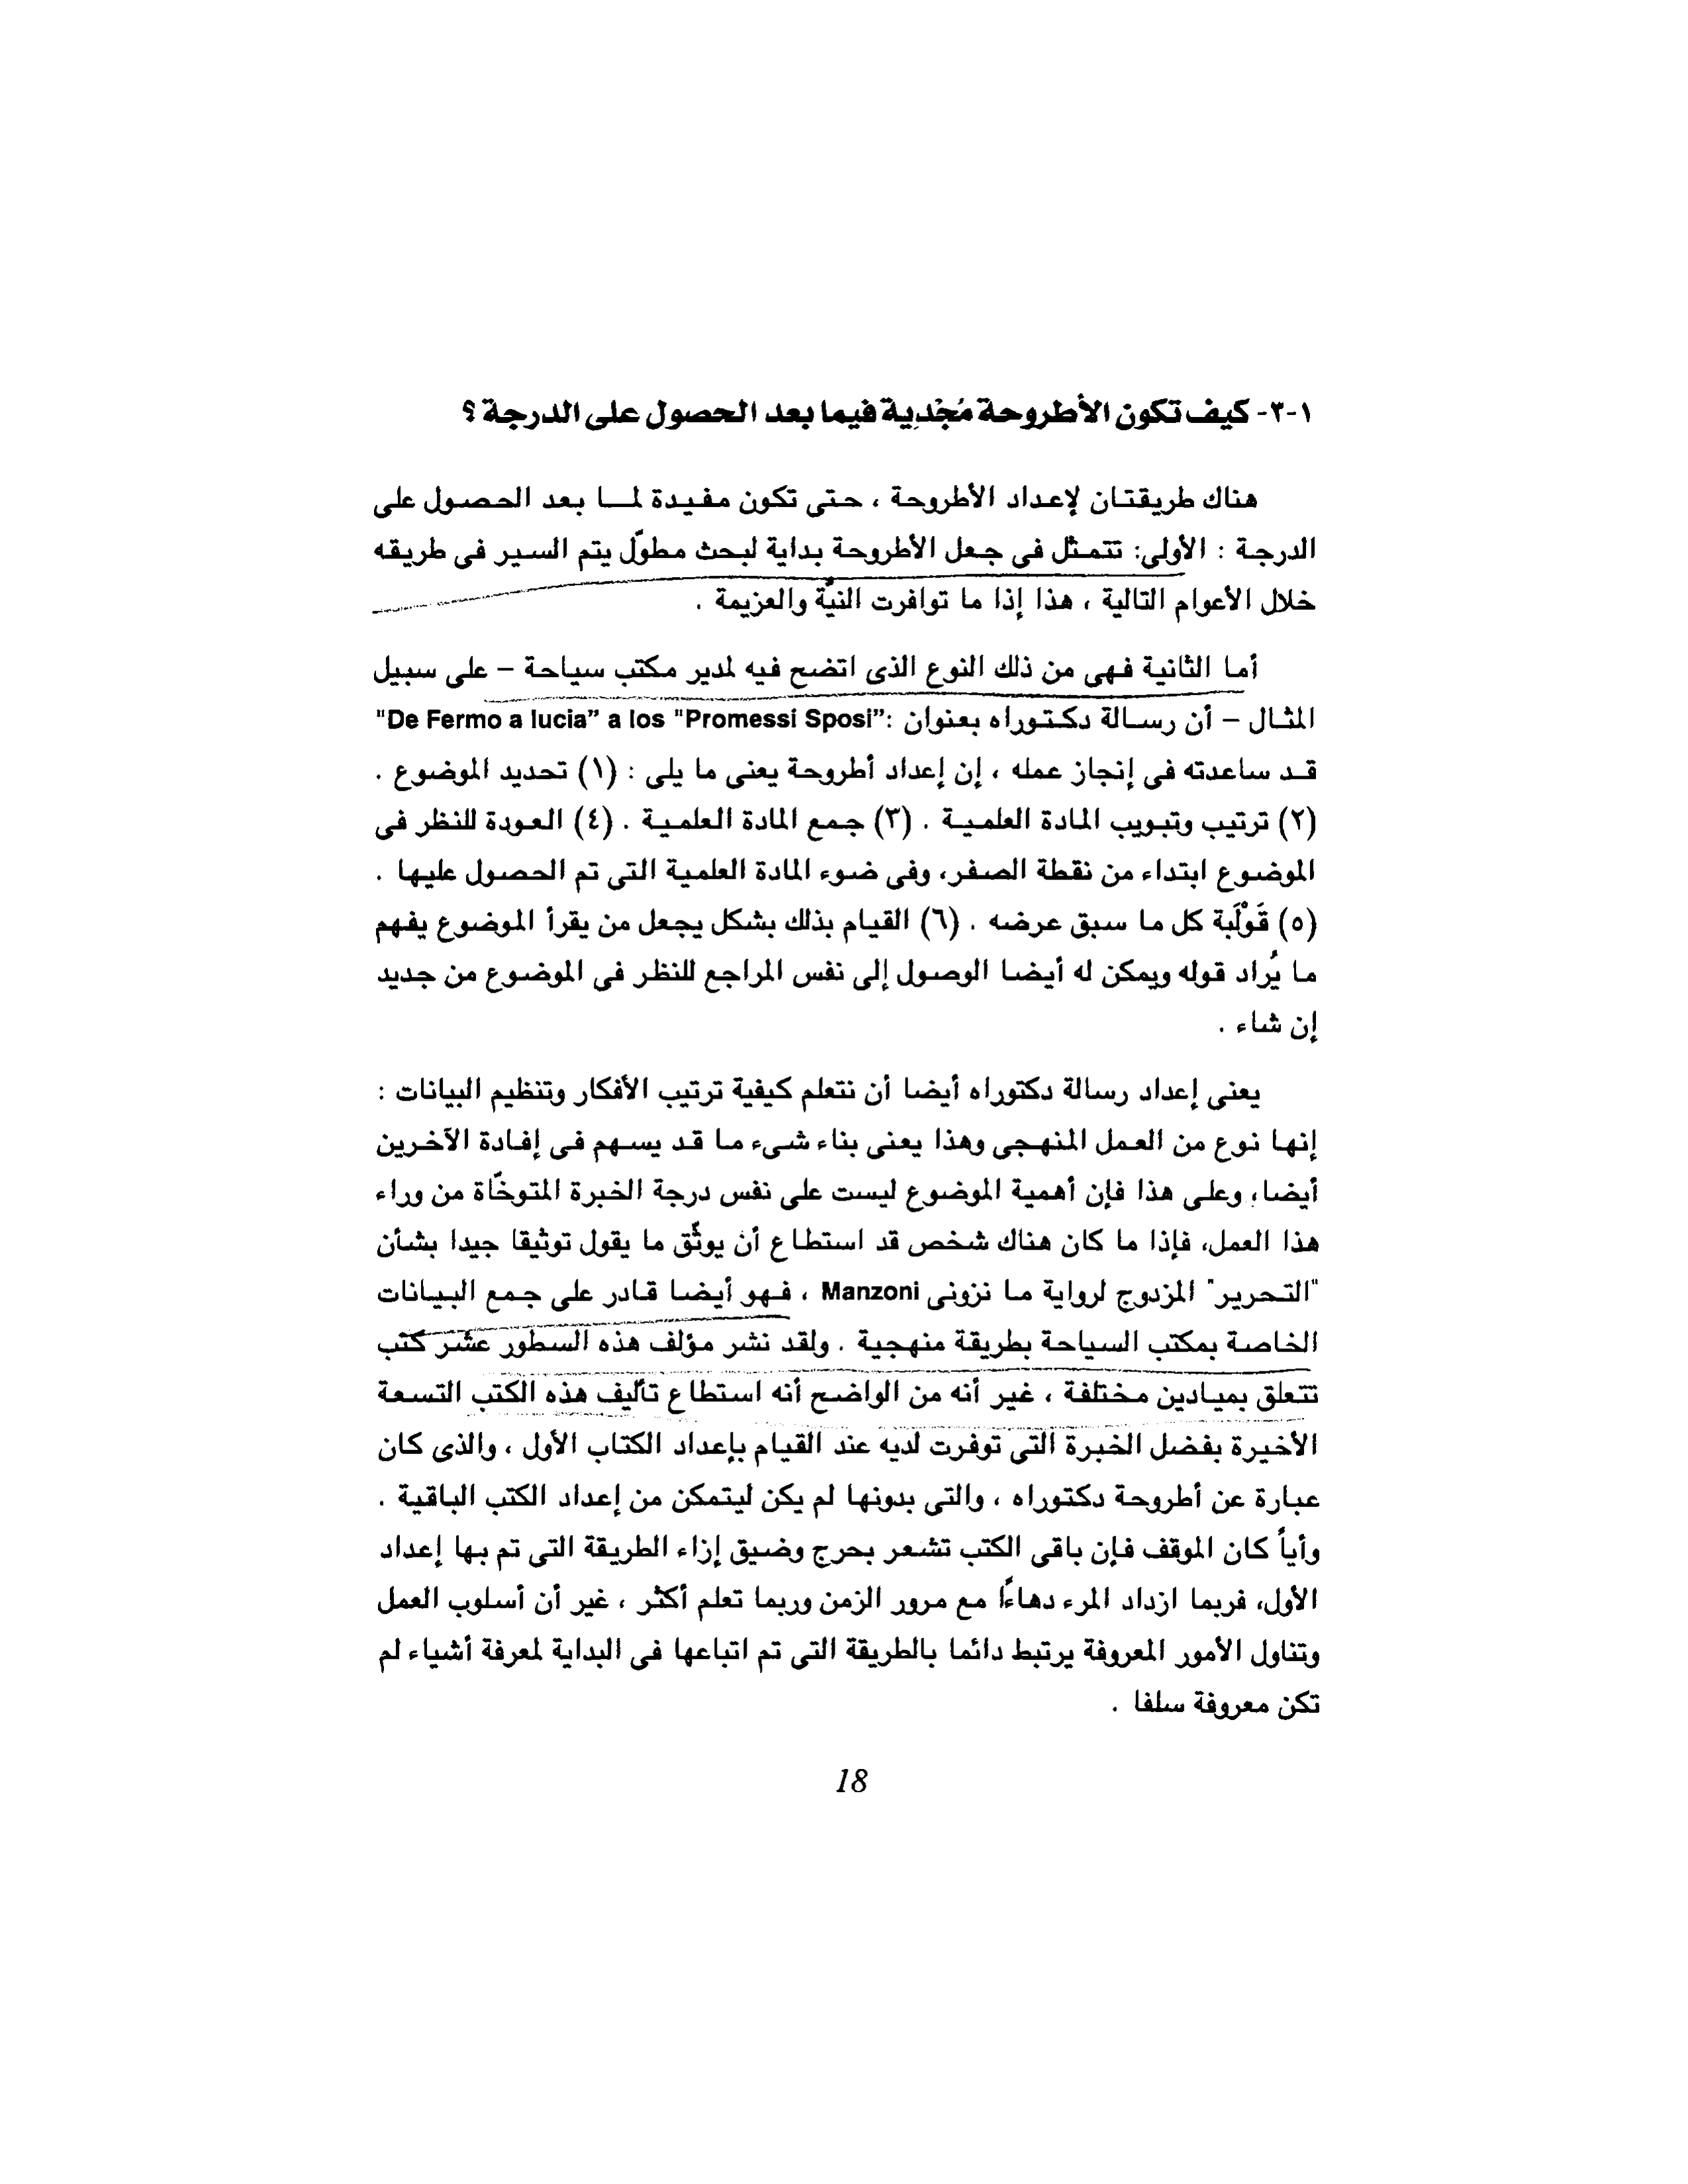 ١-٢- كيف تكون الأطروحة مُجْدِية فيما بعد الحصول على الدرجة ؟
هناك طريقتان لإعداد الأطروحة ، حتى تكون مفيدة لما بعد الحصول على
الدرجة : الأولى: تتمثل فى جعل الأطروحة بداية لبحث مطوّل يتم السير فى طريقه
خلال الأعوام التالية ، هذا إذا ما توافرت النيَّة والعزيمة .
أما الثانية فهى من ذلك النوع الذى اتضح فيه لمدير مكتب سياحة – على سبيل
المثال – أن رسالة دكتوراه بعنوان :"De Fermo a lucia” a los "Promessi Sposi”
قد ساعدته فى إنجاز عمله ، إن إعداد أطروحة يعنى ما يلى : (١) تحديد الموضوع .
(٢) ترتيب وتبويب المادة العلمية . (٣) جمع المادة العلمية . (٤) العودة للنظر فى
الموضوع ابتداء من نقطة الصفر، وفى ضوء المادة العلمية التى تم الحصول عليها .
(٥) قَوْلَبة كل ما سبق عرضه . (٦) القيام بذلك بشكل يجعل من يقرأ الموضوع يفهم
ما يُراد قوله ويمكن له أيضا الوصول إلى نفس المراجع للنظر فى الموضوع من جديد
إن شاء .
يعنى إعداد رسالة دكتوراه أيضا أن نتعلم كيفية ترتيب الأفكار وتنظيم البيانات :
إنها نوع من العمل المنهجى وهذا يعنى بناء شىء ما قد يسهم فى إفادة الآخرين
أيضا، وعلى هذا فإن أهمية الموضوع ليست على نفس درجة الخبرة المتوخَّاة من وراء
هذا العمل، فإذا ما كان هناك شخص قد استطاع أن يوثِّق ما يقول توثيقا جيدا بشأن
"التحرير" المزدوج لرواية ما نزونى Manzoni ، فهو أيضا قادر على جمع البيانات
الخاصة بمكتب السياحة بطريقة منهجية . ولقد نشر مؤلف هذه السطور عشر كتب
تتعلق بميادين مختلفة ، غير أنه من الواضح أنه استطاع تأليف هذه الكتب التسعة
الأخيرة بفضل الخبرة التى توفرت لديه عند القيام بإعداد الكتاب الأول ، والذى كان
عبارة عن أطروحة دكتوراه ، والتى بدونها لم يكن ليتمكن من إعداد الكتب الباقية .
وأياً كان الموقف فإن باقى الكتب تشعر بحرج وضيق إزاء الطريقة التى تم بها إعداد
الأول، فربما ازداد المرء دهاءً مع مرور الزمن وربما تعلم أكثر ، غير أن أسلوب العمل
وتناول الأمور المعروفة يرتبط دائما بالطريقة التى تم اتباعها فى البداية لمعرفة أشياء لم
تكن معروفة سلفا .
18